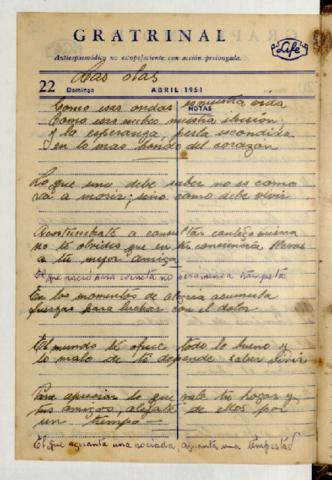 GRATRINAL
Life
Antiespasmódico no estupefaciente con acción prolongada.
Las olas
22 Domingo ABRIL 1951
NOTAS
Como esas ondas es nuestra vida
Como esas nubes nuestra ilusion
y la esperanza, perla escondida
en lo mas hondo del corazon
Lo que uno debe saber no es como
va a morir; sino como debe vivir
Acostumbrate a consultar contigo misma
no te olvides que en tu conciencia llevas
a tu mejor amiga
El que nació para corneta no será nunca
En los momentos de alegria acumula
fuerzas para luchar con el dolor
El mundo te ofrece todo lo bueno y
lo malo de ti depende saber vivir
Para apreciar lo que vale tu hogar y
tus amigos, alejate de ellos por
un tiempo
El que aguanta una, aguanta una tempestad